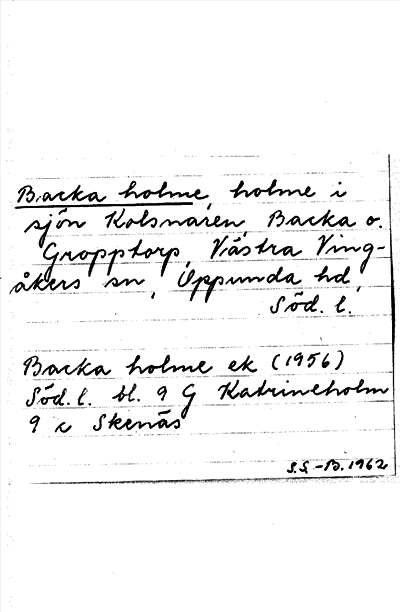 Backa holme, holme i
sjön Kolsnaren, Backa o.
Gropptorp, Västra Ving-
åkers sn, Oppunda hd,
Söd. l.
Backa holme ek (1956)
Söd. l. bl. 9 G Katrineholm
9 c Skenäs
S.S.-B. 1962